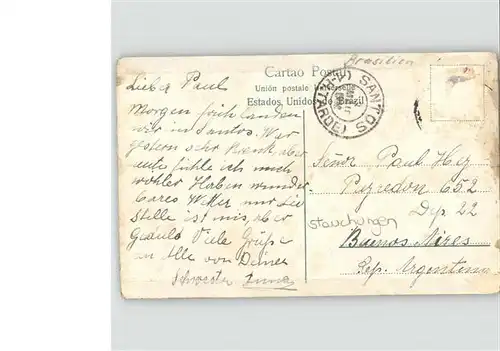 Brasilien
Cartao Postal
Unión postale universelle
Estados Unidos do Brazil
SANTOS
(TARDE)
Lieber Paul
Morgen früh landen
wir in Santos. War
gstern sehr krank, aber
eute fühle ich mich
wohler. Haben wunder
bares Wetter nur die
Stelle ist mis, aber
Viele Grüße
an Alle von Deiner
Schwester
Señor Paul Hez
Puyredon 652
Dep 22
stauchungen
Buenos Aires
Rep. Argentina